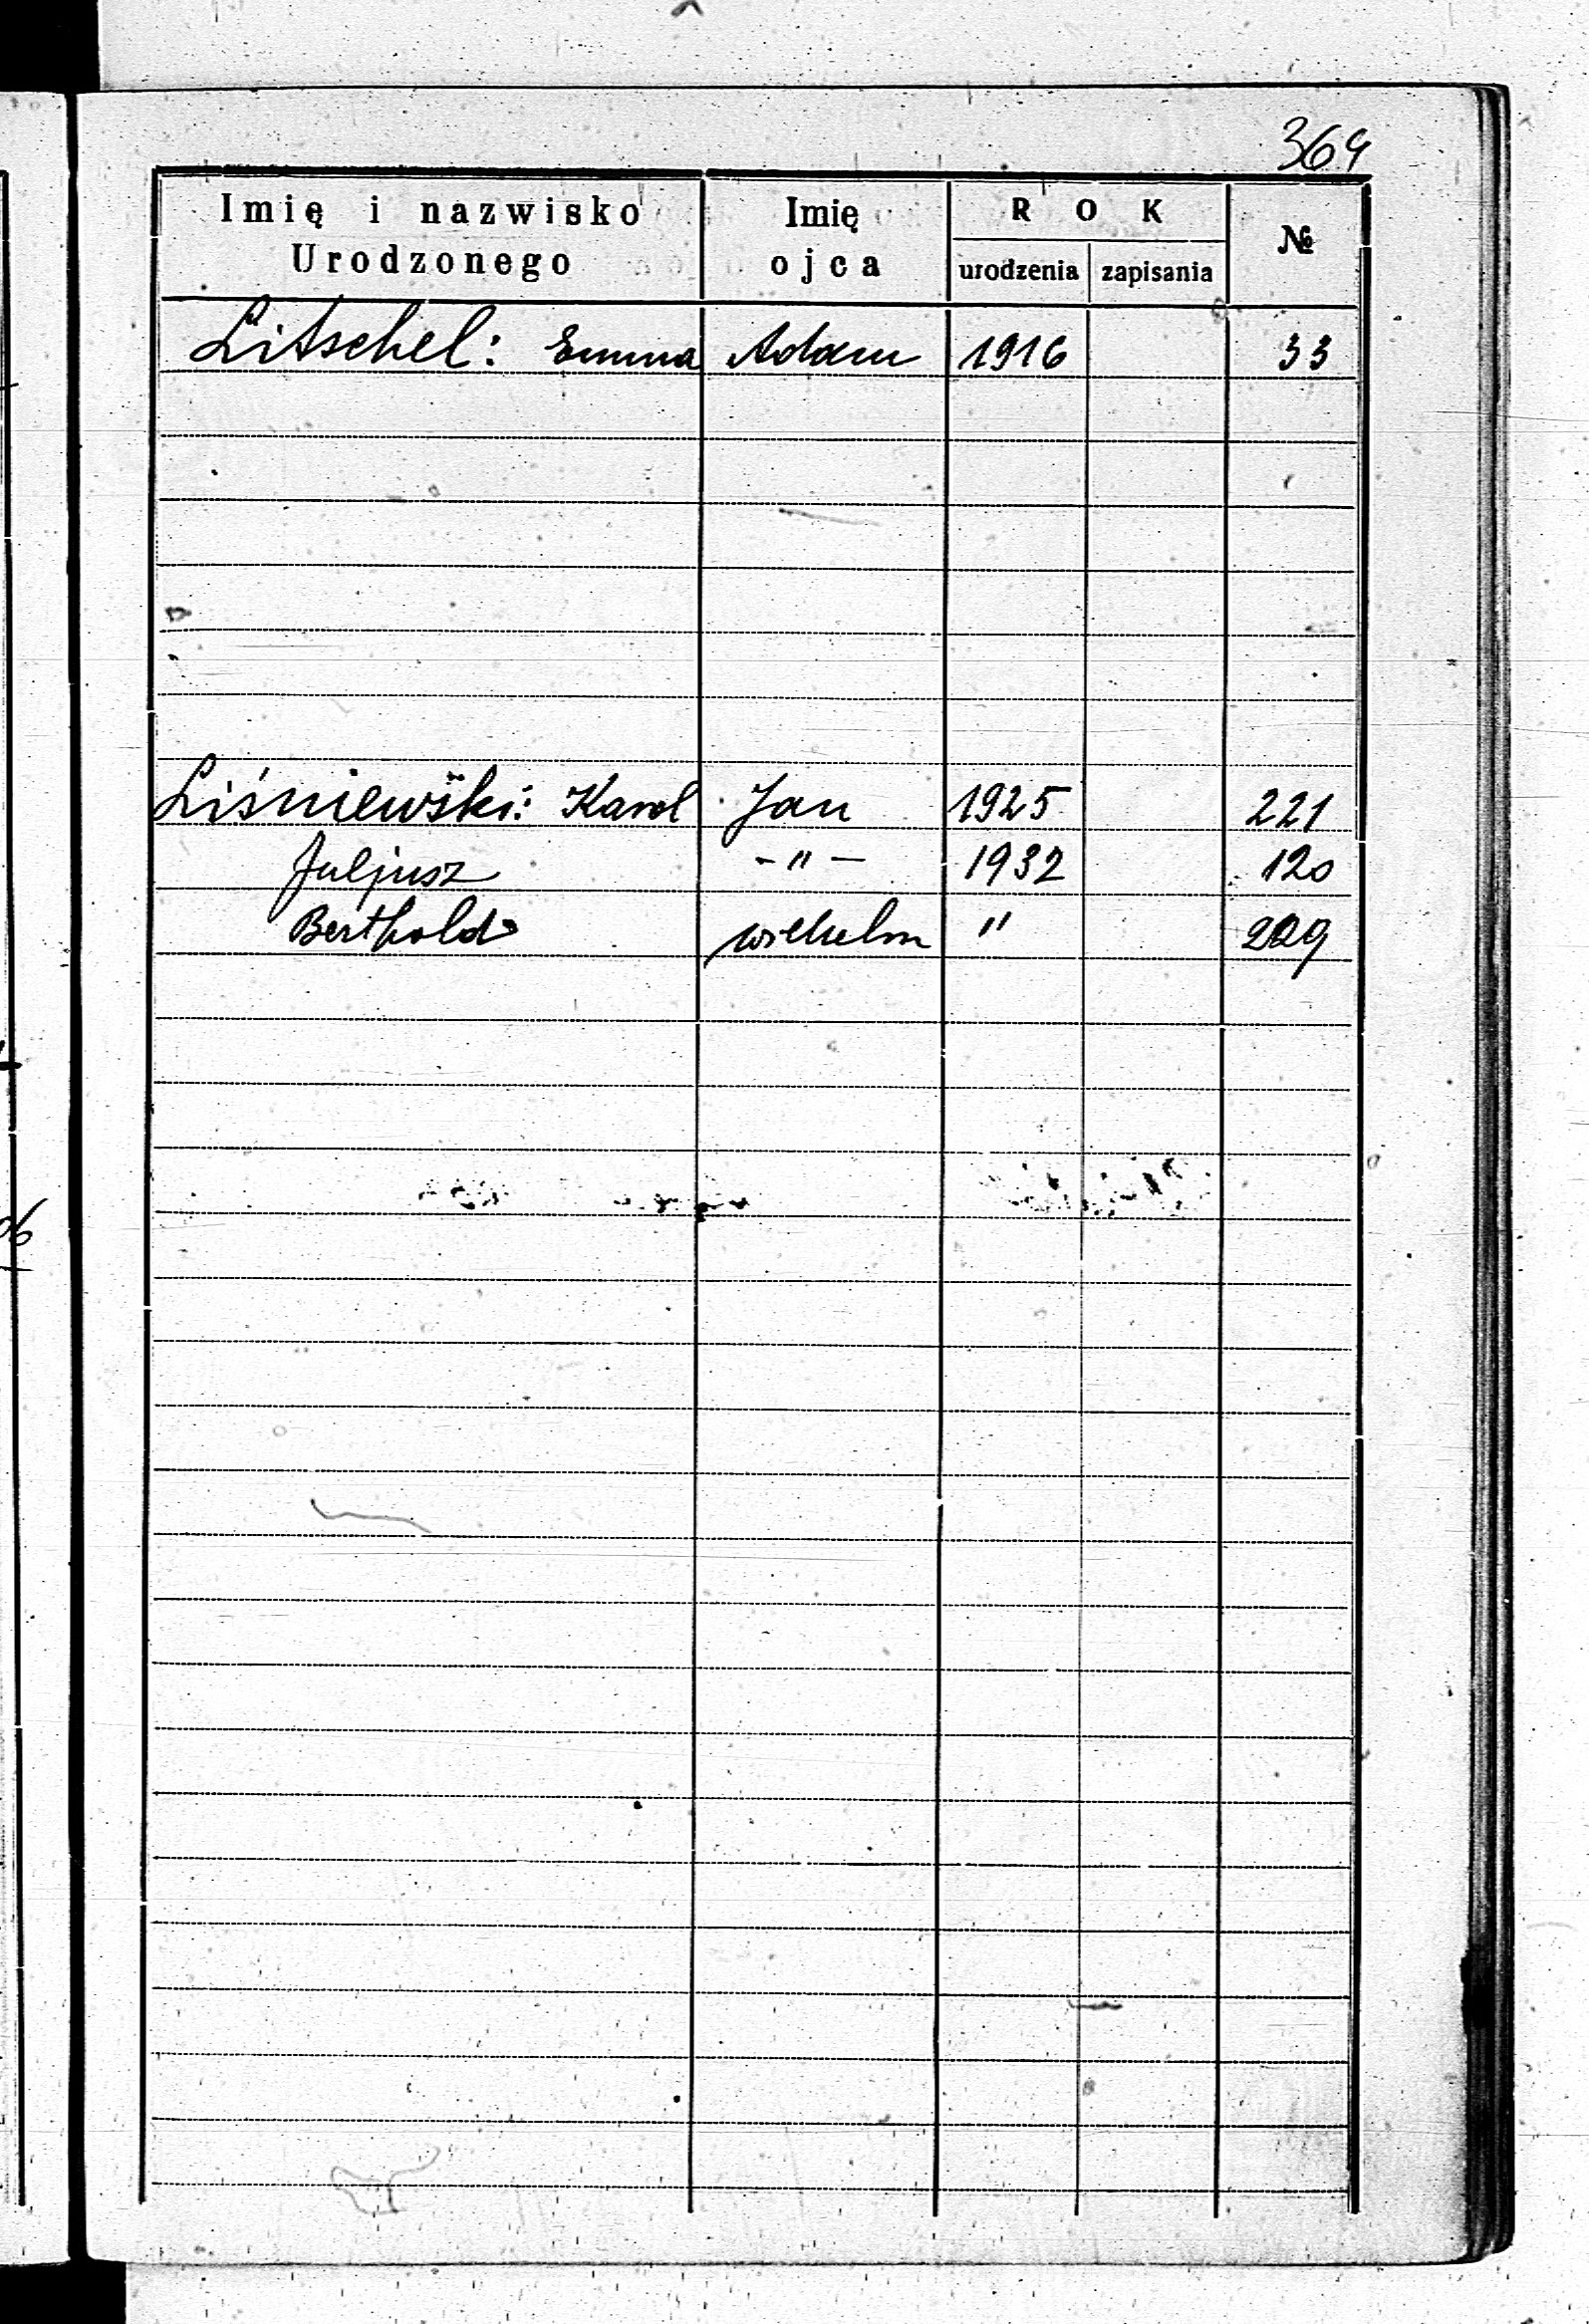 364
Imię i nazwisko Urodzonego Imię ojca ROK urodzenia zapisania №
Litschel: Emma Adam 1916 33
Liśniewski: Karol Jan 1925 221
Juljusz -"- 1932 120
Berthold Wilhelm " 229